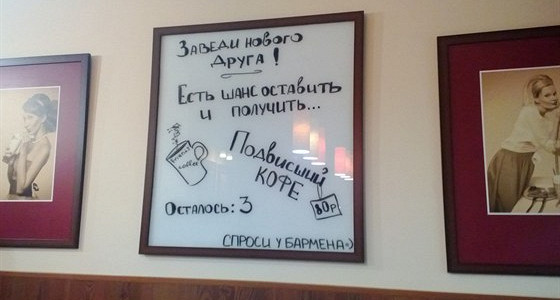 Заведи нового
друга!
Есть шанс оставить
и получить...
Подвисший
кофе
80р
Осталось: 3
спроси у бармена=)